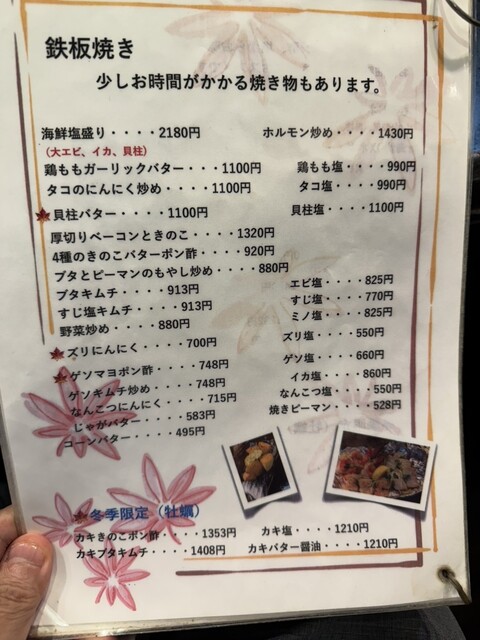 鉄板焼き
少しお時間がかかる焼き物もあります。
海鮮塩盛り・・・・2180円
(大エビ、イカ、貝柱)
鶏ももガーリックバター・・・1100円
タコのにんにく炒め・・・・1100円
貝柱バター・・・・1100円
厚切りベーコンときのこ・・・・1320円
4種のきのこバターポン酢・・・・920円
ブタとピーマンのもやし炒め・・・・880円
ブタキムチ・・・・913円
すじ塩キムチ・・・・913円
野菜炒め・・・・880円
ズリにんにく・・・・700円
ゲソマヨポン酢・・・・748円
ゲソキムチ炒め・・・・748円
なんこつにんにく・・・・715円
じゃがバター・・・・583円
コーンバター・・・・495円
ホルモン炒め・・・・1430円
鶏もも塩・・・・990円
タコ塩・・・・990円
貝柱塩・・・・1100円
エビ塩・・・・825円
すじ塩・・・・770円
ミノ塩・・・・825円
ズリ塩・・・・550円
ゲソ塩・・・・660円
イカ塩・・・・860円
なんこつ塩・・・・550円
焼きピーマン・・・・528円
冬季限定(牡蠣)
カキきのこポン酢・・・・1353円
カキブタキムチ・・・・1408円
カキ塩・・・・1210円
カキバター醤油・・・・1210円